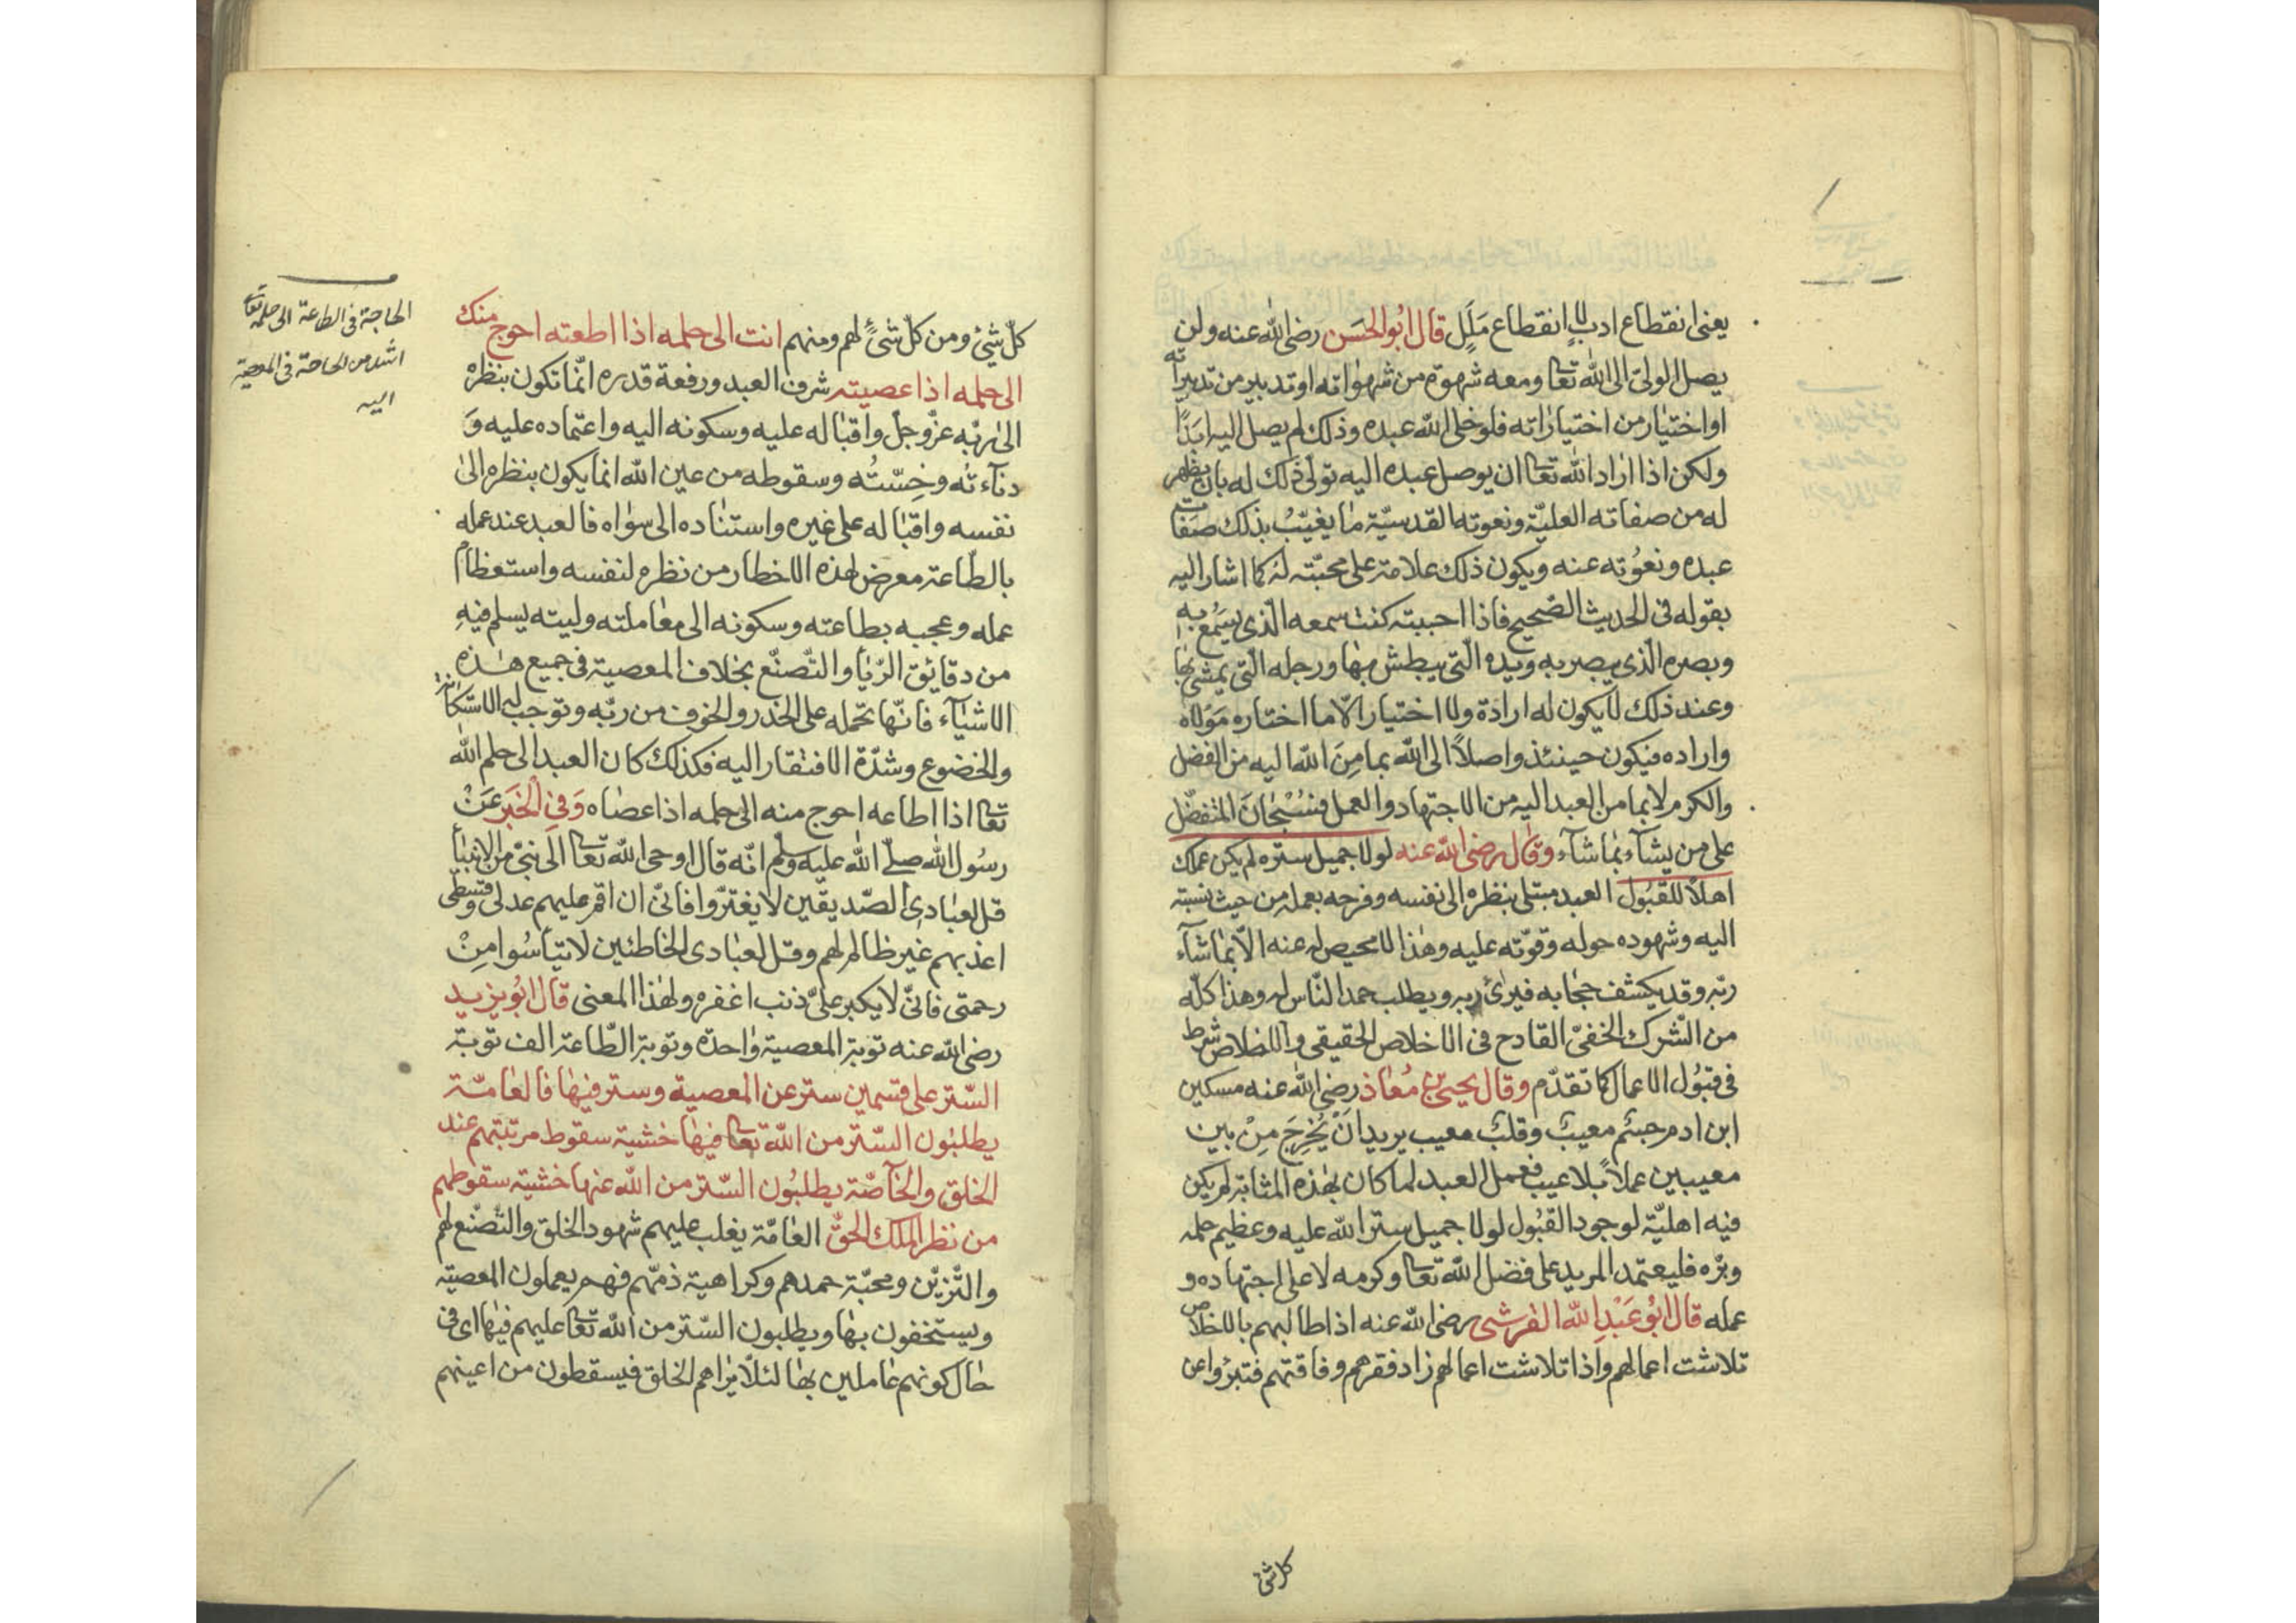 يعنى انقطاع ادب لا انقطاع ملل قال ابو الحسن رضى الله عنه ولن
يصل الولى الى الله تعا ومعه شهوة من شهواته او تدبير من تدبيراته
او اختيار من اختياراته فلو خلى الله عبده وذلك لم يصل اليه ابدا
ولكن اذا اراد الله تعا ان يوصل عبده اليه تولى ذلك له بان يظهر
له من صفاته العلية ونعوته القدسية ما يغيب بذلك صفات
عبده ونعوته عنه ويكون ذلك علامة على محبته له كما اشار اليه
بقوله فى الحديث الصحيح فاذا احببته كنت سمعه الذى يسمع به
وبصره الذى يبصر به ويده التى يبطش بها ورجله التى يمشى بها
وعند ذلك لا يكون له ارادة ولا اختيار الا ما اختاره مولاه
واراده فيكون حينئذ واصلا الى الله بما من الله اليه من الفضل
والكرم لا بما من العبد اليه من الاجتهاد والعمل فسبحان المتفضل
على من يشآء بما شآء وقال رضى الله عنه لولا جميل ستره لم يكن عملك
اهلا للقبول العبد مبتلى بنظره الى نفسه وفرحه بعمله من حيث نسبته
اليه وشهوده حوله وقوته عليه وهذا لا محيص له عنه الا بما شآء
ربه وقد يكشف حجابه فيرائ ربه ويطلب حمد الناس له وهذا كله
من الشرك الخفى القادح فى الاخلاص الحقيقى والاخلاص شرط
فى قبول الاعمال كما تقدم وقال يحيى بن معاذ رضى الله عنه مسكين
ابن ادم جسم معيب وقلب معيب يريد ان يخرج من بين
معيبين عملا بلا عيب فعمل العبد لما كان بهذه المثابة لم يكن
فيه اهلية لوجود القبول لولا جميل ستر الله عليه وعظيم حلمه
وبره فليعتمد المريد على فضل الله تعا وكرمه لا على اجتهاده و
عمله قال ابو عبد الله القرشى رضى الله عنه اذا طالبهم بالاخلاص
تلاشت اعمالهم واذا تلاشت اعمالهم زاد فقرهم وفاقتهم فتبرؤا عن
كل شئ
كل شئ ومن كل شئ لهم ومنهم انت الى حلمه اذا اطعته احوج منك
الى حلمه اذا عصيته شرف العبد ورفعة قدره انما تكون بنظره
الى ربه عز وجل واقباله عليه وسكونه اليه واعتماده عليه و
دنآءته وخسته وسقوطه من عين الله انما يكون بنظره الى
نفسه واقباله على غيره واستناده الى سواه فالعبد عند عمله
بالطاعة معرض لهذه الاخطار من نظره لنفسه واستعظام
عمله وعجبه بطاعته وسكونه الى معاملته وليته يسلم فيه
من دقايق الريا والتصنع بخلاف المعصية فى جميع هذه
الاشيآء فانها تحمله على الحذر والخوف من ربه وتوجب له الاستكانة
والخضوع وشدة الافتقار اليه فكذلك كان العبد الى حلم الله
تعا اذا اطاعه احوج منه الى حلمه اذا عصاه وفى الخبر عن
رسول الله صلى الله عليه وسلم انه قال اوحى الله تعا الى نبى من الانبيآ
قل لعبادى الصديقين لا يغتروا فانى ان اقم عليهم عدلى وقسطى
اعذبهم غير ظالم لهم وقل لعبادى الخاطئين لا تيأسوا من
رحمتى فانى لا يكبر على ذنب اغفره ولهذا المعنى قال ابو يزيد
رضى الله عنه توبة المعصية واحدة وتوبة الطاعة الف توبة
الستر على قسمين ستر عن المعصية وستر فيها فالعامة
يطلبون الستر من الله تعا فيها خشية سقوط مرتبتهم عند
الخلق والخآصة يطلبون الستر من الله عنها خشية سقوطهم
من نظر الملك الحق العامة يغلب عليهم شهود الخلق والتصنع لهم
والتزين ومحبة حمدهم وكراهية ذمهم فهم يعملون المعصية
ويستخفون بها ويطلبون الستر من الله تعا عليهم فيها اى فى
حال كونهم عاملين بها لئلا يراهم الخلق فيسقطون من اعينهم
الحاجة فى الطاعة الى حلمه تعا
اشد من الحاجة فى المعصية
اليه